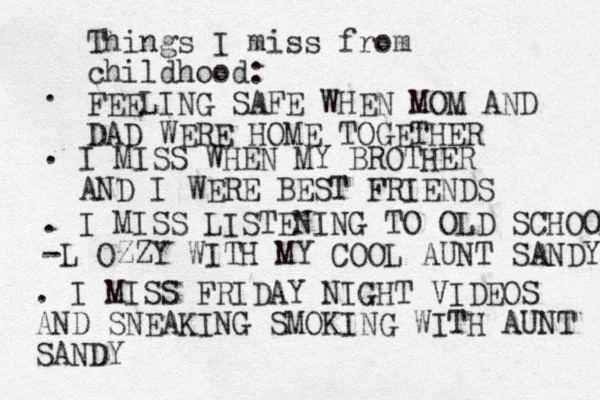 Things I miss from
childhood:
. FEELING SAFE WHEN MOM AND
DAD WERE HOME TOGETHER
. I MISS WHEN MY BROTHER
AND I WERE BEST FRIENDS
. I MISS LISTENING TO OLD SCHOO
-L OZZY WITH MY COOL AUNT SANDY
. I MISS FRIDAY NIGHT VIDEOS
AND SNEAKING SMOKING WITH AUNT
SANDY